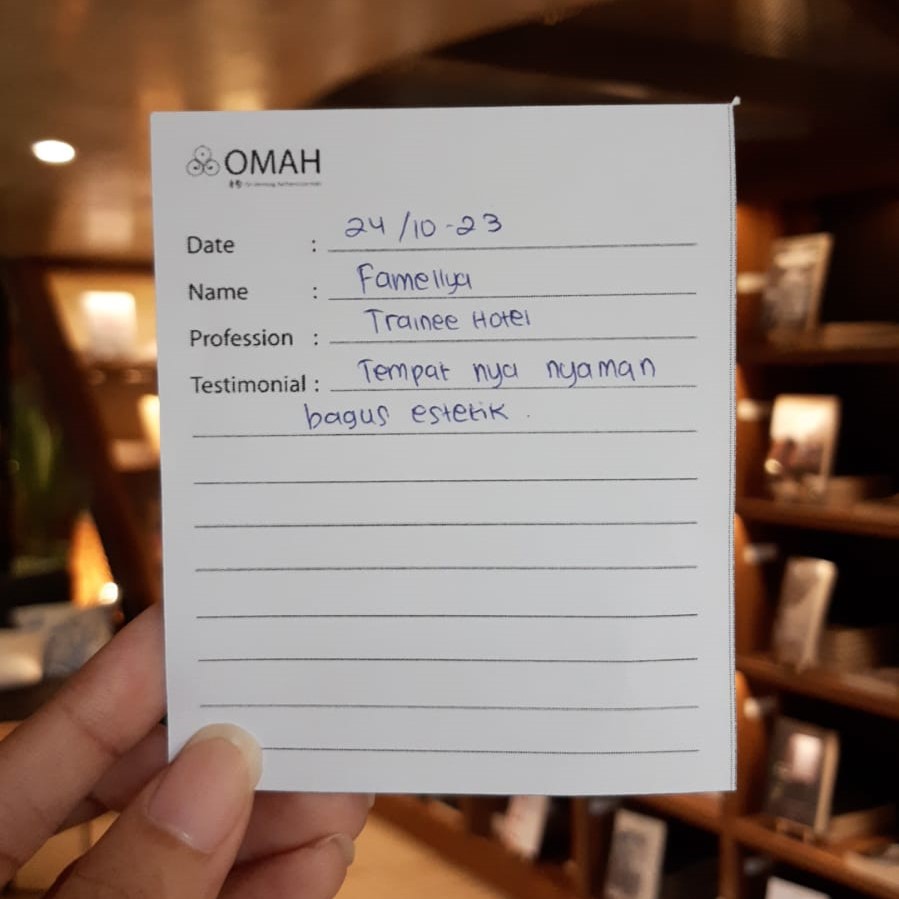 OMAH
Date : 24/10-23
Name : Famellya
Profession : Trainee Hotel
Testimonial : Tempat nya nyaman
bagus estetik.